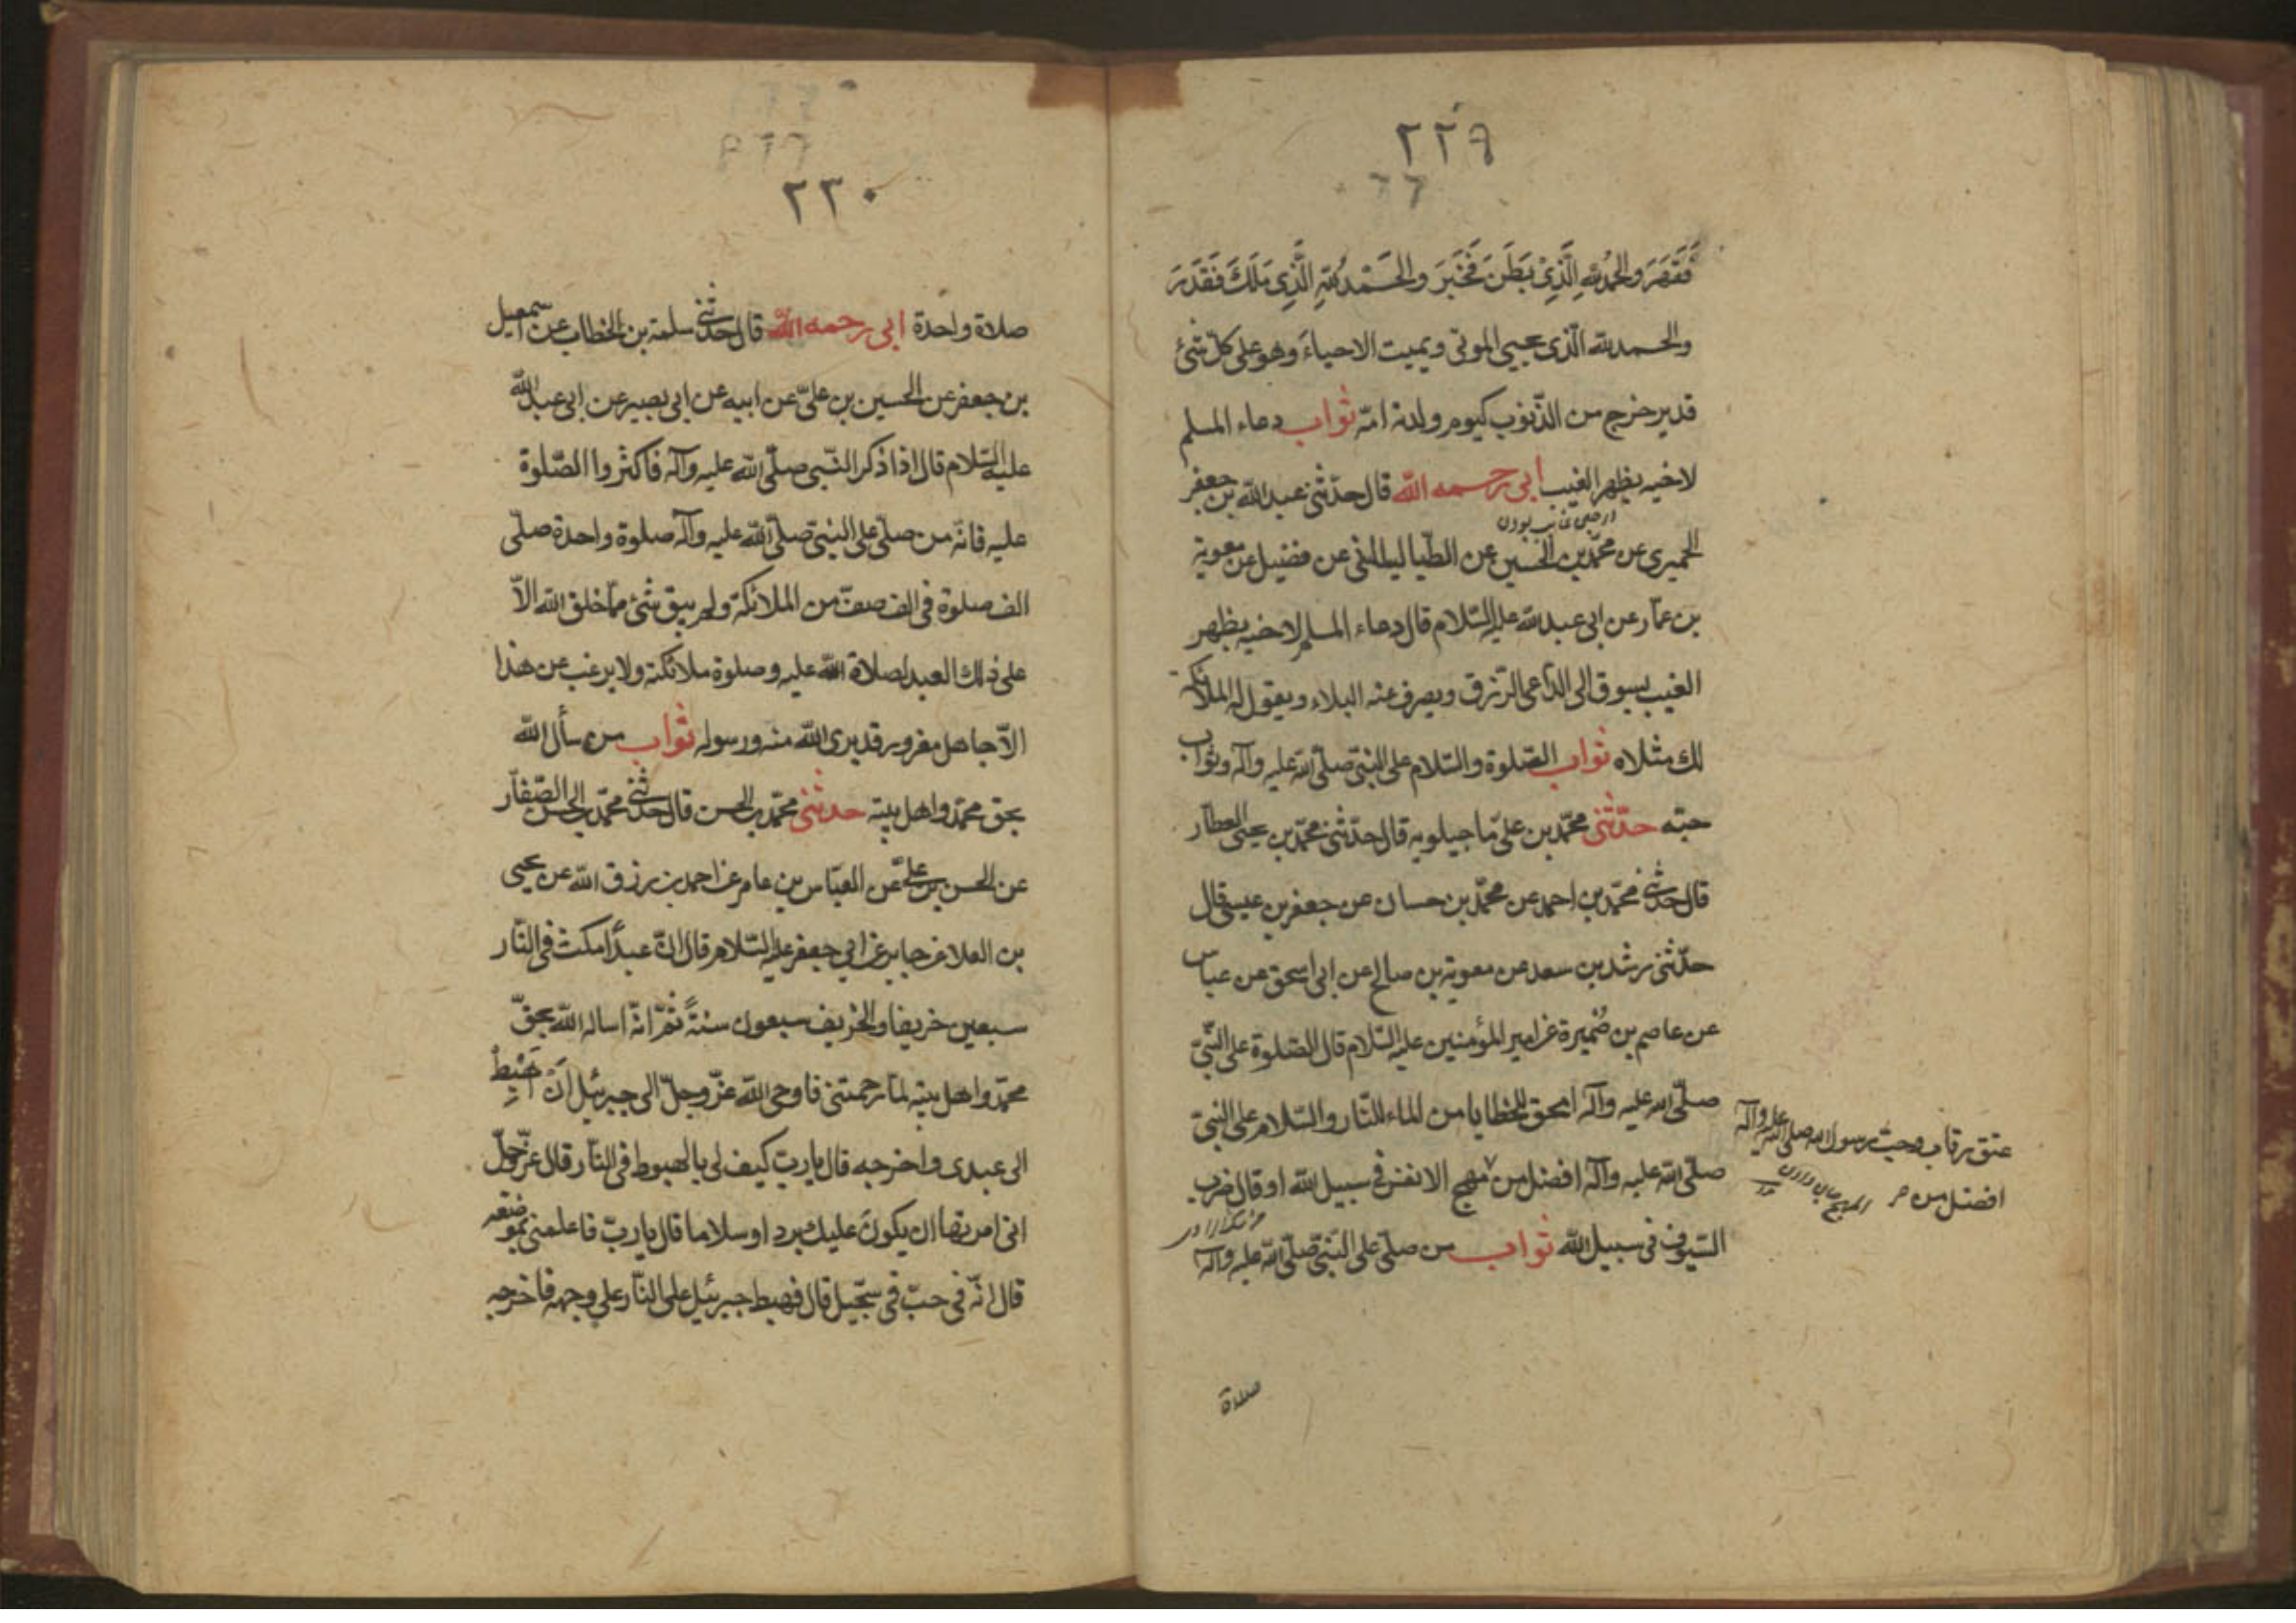 ٢٢٩
فَقَهَرَ والحمدُ للهِ الَّذِیْ بَطَنَ فَخَبَرَ والحَمْدُ للهِ الَّذِی مَلَكَ فَقَدَرَ
والحمد لله الّذی یحیی الموتی ویمیت الاحیاءَ وهو علی كلّ شیٔ
قدیر خرج من الذّنوب كیوم ولدته امّه ثواب دعاء المسلم
لاخیه بظهر الغیب ابی رحمه الله قال حدّثنی عبد الله بن جعفر
الحمیری عن محمّد بن الحسین عن الطیالیا عن فضیل عن معویة
بن عمّار عن ابی عبد الله علیه السّلام قال دعاء المسلم لاخیه بظهر
الغیب یسوق الی الدّاعی الرّزق ویصرف عنه البلاء ویقول له الملائكة
لك مثلاه ثواب الصّلوة والسّلام علی النّبیّ صلّی الله علیه وآله وثواب
حبّه حدّثنی محمّد بن علیّ ماجیلویه قال حدّثنی محمّد بن یحیی العطار
قال حدّثنی محمّد بن احمد عن محمّد بن حسان عن جعفر بن عیسی قال
حدّثنی رشد بن سعد عن معویة بن صالح عن ابی اسحق عن عباس
عن عاصم بن ضُمیرة عن امیر المؤمنین علیه السّلام قال الصّلوة علی النّبیّ
صلّی الله علیه وآله امحق للخطایا من الماء للنّار والسّلام علی النبیّ
صلّی الله علیه وآله افضل من مهج الانفس فی سبیل الله او قال ضرب
السّیوف فی سبیل الله ثواب من صلّی علی النّبیّ صلّی الله علیه وآله
عتق رقاب وحبّ رسول الله صلی الله علیه وآله
افضل من
صلاة
٢٣٠
صلاة واحدة ابی رحمه الله قال حدّثنی سلمة بن الخطاب عن اسمعیل
بن جعفر عن الحسین بن علیّ عن ابیه عن ابی بصیر عن ابی عبد الله
علیه السّلام قال اذا ذكر النّبی صلّی الله علیه وآله فاكثروا الصّلوة
علیه فانّه من صلّی علی النبیّ صلّی الله علیه وآله صلوة واحدة صلّی
الف صلوة فی الف صفّ من الملائكة ولم یبق شیٔ ممّا خلق الله الاّ
علی ذلك العبد لصلاة الله علیه وصلوة ملائكته ولا یرغب عن هذا
الاّ جاهل مغرور قد برئ الله منه ورسوله ثواب من سأل الله
بحق محمّد واهل بیته حدّثنی محمّد بن الحسن قال حدّثنی محمّد بن الحسن الصّفار
عن الحسن بن علیّ عن العبّاس بن عامر عن احمد بن رزق الله عن یحیی
بن العلا عن جابر عن ابی جعفر علیه السّلام قال انّ عبدًا مكث فی النّار
سبعین خریفا والخریف سبعون سنةً ثمّ انّه اساله الله بحقّ
محمّد واهل بیته لمّا رحمتنی فاوحی الله عزّ وجلّ الی جبرئیل اَنْ اهْبِطْ
الی عبدی واخرجه قال یا ربّ كیف لی بالهبوط فی النّار قال عزّ وجلّ
انی امرتها ان یكونَ علیك بردا وسلاما قال یا ربّ فاعلمنی بموضعه
قال انّه فی جبّ فی سجّیل قال فهبط جبرئیل علی النّار علی وجهه فاخرجه